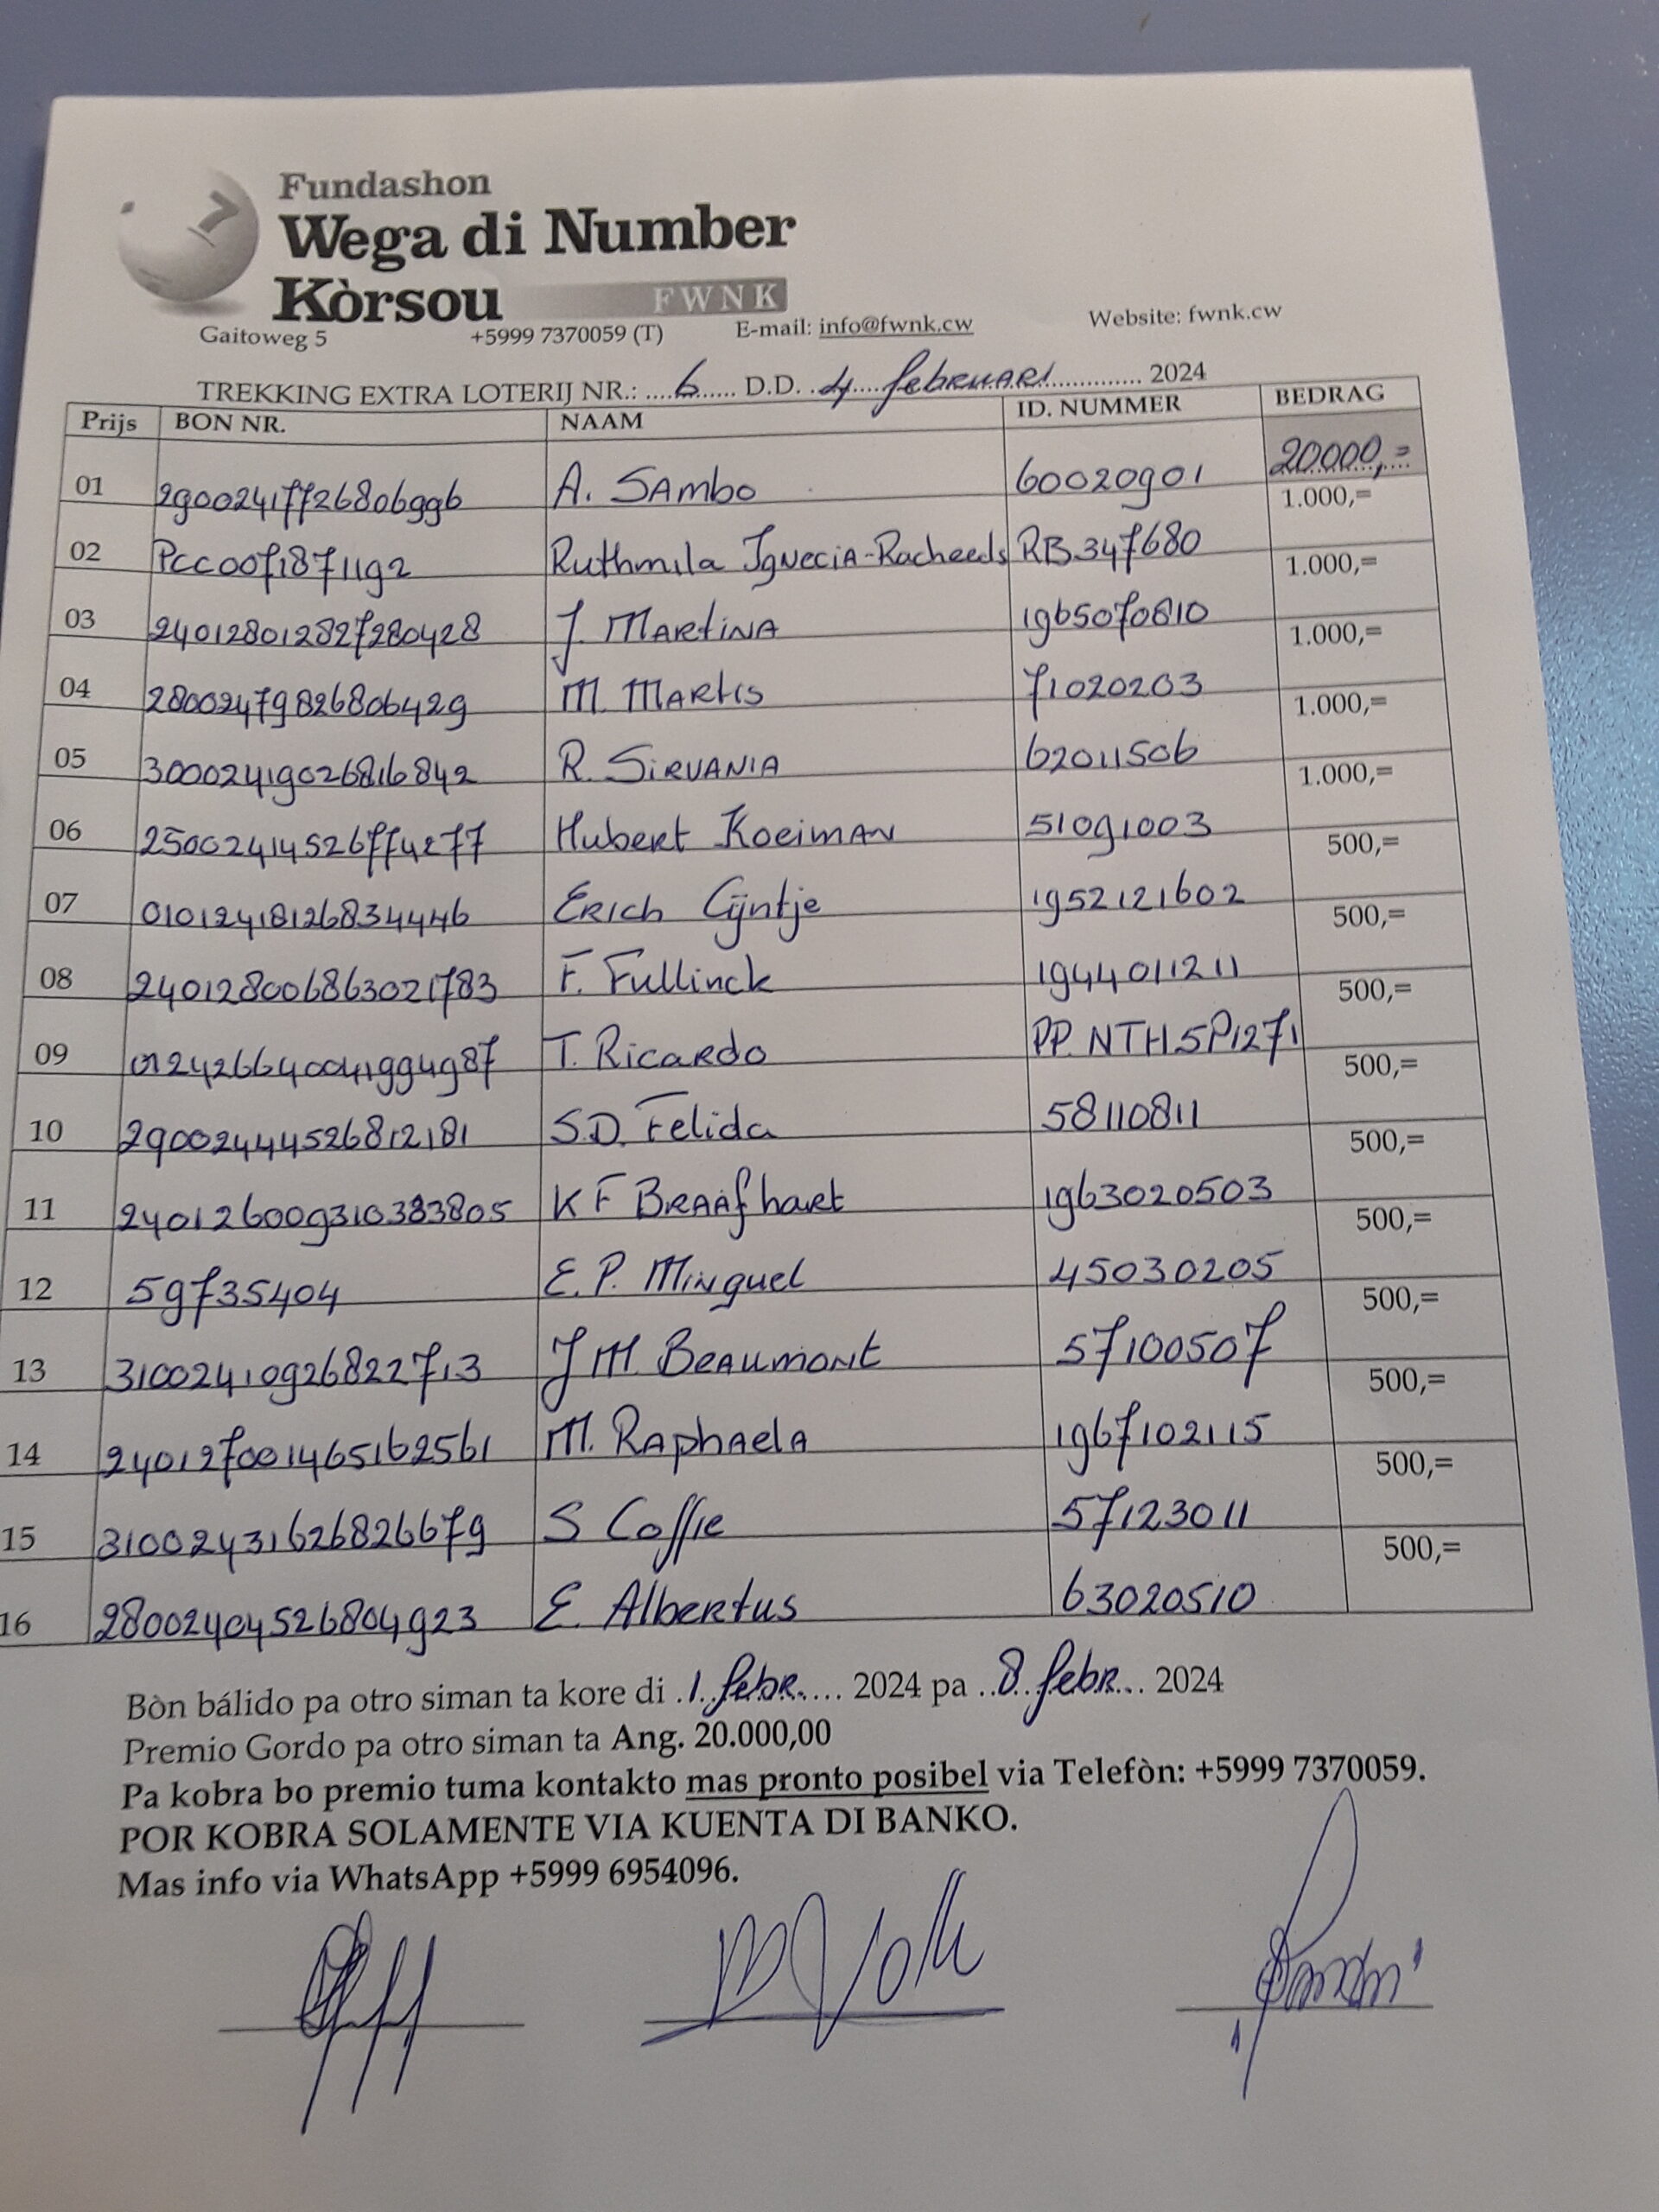 Fundashon
Wega di Number
Kòrsou FWNK
Gaitoweg 5 +5999 7370059 (T) E-mail: info@fwnk.cw Website: fwnk.cw
TREKKING EXTRA LOTERIJ NR.: ....6...... D.D. ..4....februari.............. 2024
Prijs BON NR. NAAM ID. NUMMER BEDRAG
01 29002417726806996 A. Sambo 60020901 20000,=
02 PCC0071871192 Ruthmila Ignecia-Racheeds RB347680 1.000,=
03 240128012827280428 J. Martina 1965070810 1.000,=
04 28002479826806429 M. Martis 71020203 1.000,=
05 30002419026816842 R. Sirvania 62011506 1.000,=
06 25002414526774277 Hubert Koeiman 51091003 1.000,=
07 01012418126834446 Erich Cijntje 1952121602 500,=
08 240128006863021783 F. Fullinck 1944011211 500,=
09 012426640041994987 T. Ricardo PP. NTH5P1271 500,=
10 29002444526812181 S.D. Felida 58110811 500,=
11 240126009310383805 K F Braafhart 1963020503 500,=
12 59735404 E. P. Minguel 45030205 500,=
13 31002410926822713 J M. Beaumont 57100507 500,=
14 240127001465162561 M. Raphaela 1967102115 500,=
15 31002431626826679 S Coffie 57123011 500,=
16 28002404526804923 E. Albertus 63020510 500,=
Bòn bálido pa otro siman ta kore di .1..febr..... 2024 pa ..8..febr... 2024
Premio Gordo pa otro siman ta Ang. 20.000,00
Pa kobra bo premio tuma kontakto mas pronto posibel via Telefòn: +5999 7370059.
POR KOBRA SOLAMENTE VIA KUENTA DI BANKO.
Mas info via WhatsApp +5999 6954096.